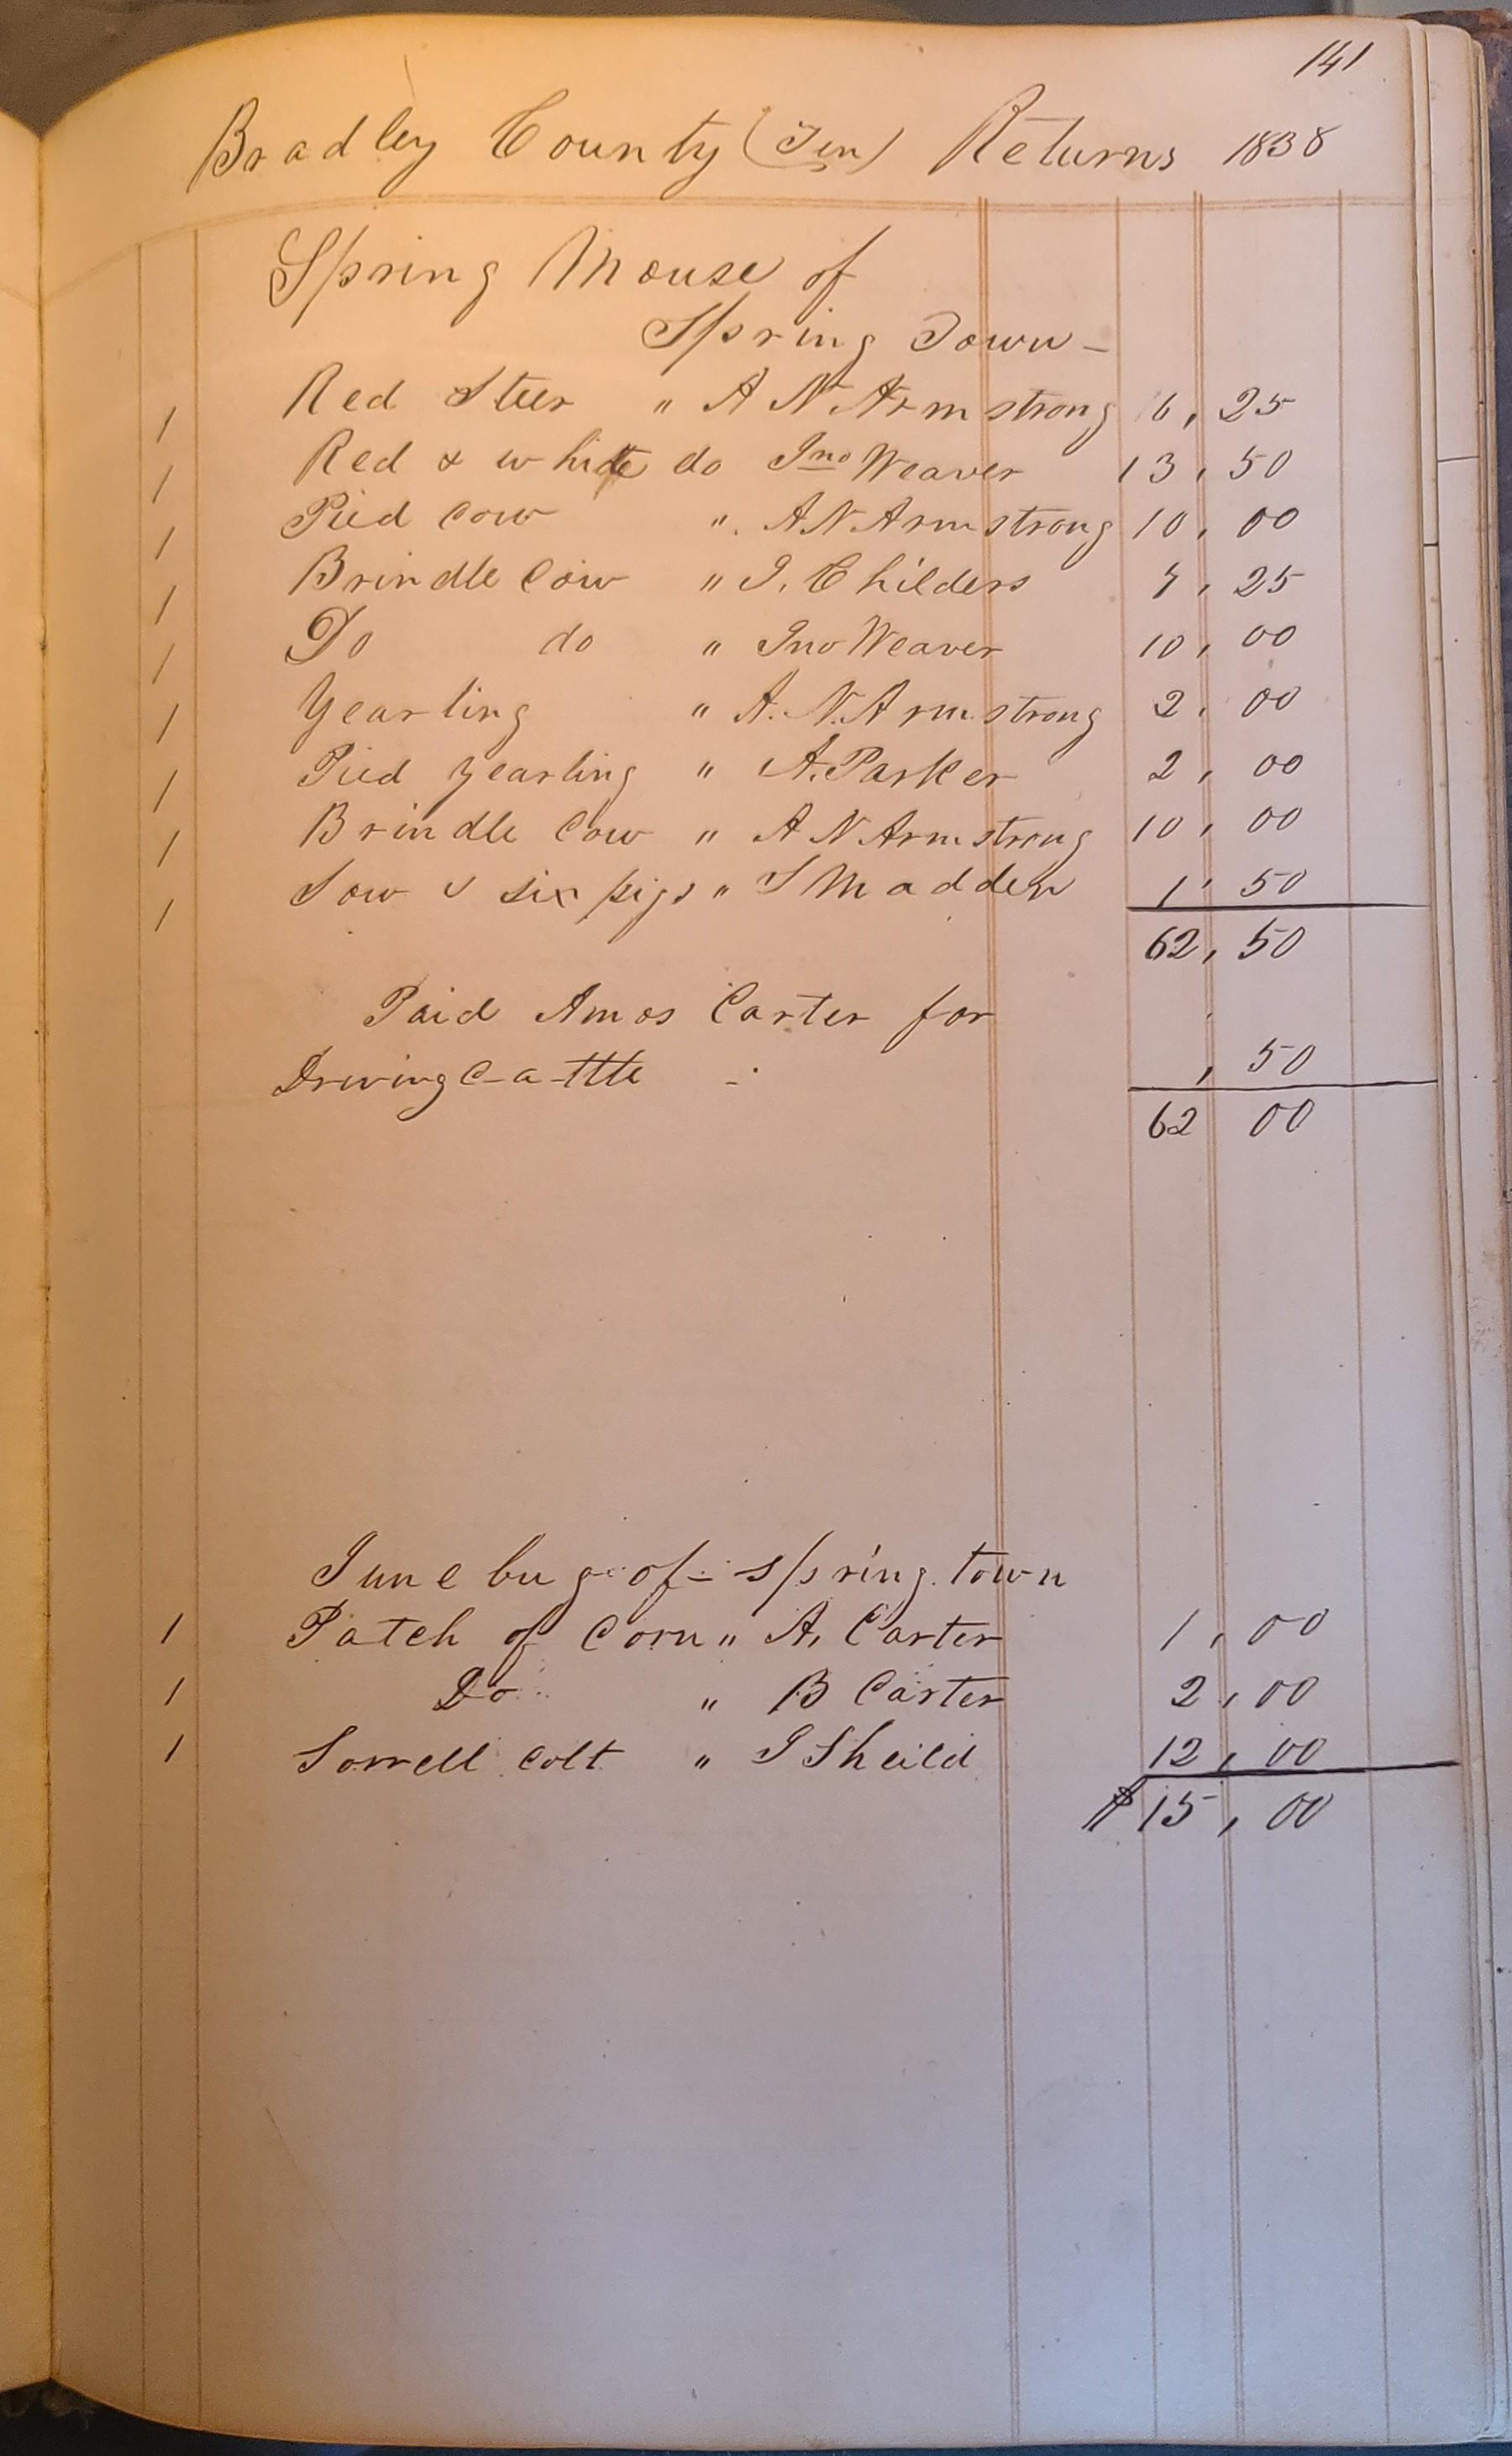 141
Bradley County (Ten) Returns 1838
Spring Mouse of
Spring Town -
1 Red Steer " A N Armstrong 6, 25
1 Red & white do Jno Weaver 13, 50
1 Pied Cow " A N Armstrong 10, 00
1 Brindle Cow " J. Childers 7, 25
1 Do do " Jno Weaver 10, 00
1 Yearling " A. N. Armstrong 2, 00
1 Pied yearling " A. Parker 2, 00
1 Brindle Cow " A N Armstrong 10, 00
1 Sow & six pigs " S Madden 1, 50
62, 50
Paid Amos Carter for
Driving Cattle - , 50
62 00
June bug of - Spring town
1 Patch of Corn " A. Carter 1, 00
1 Do " B Carter 2, 00
1 Sorrell Colt " J Sheild 12, 00
$ 15, 00